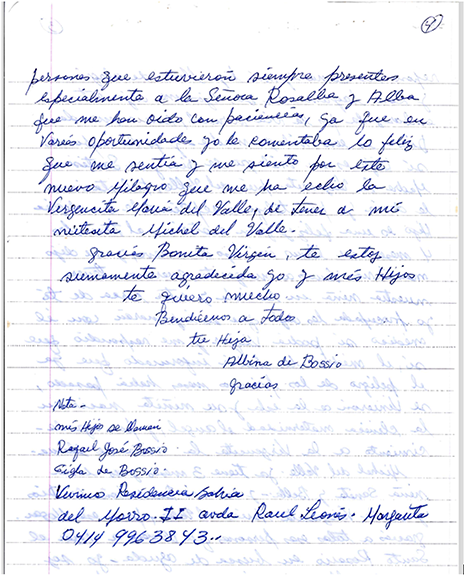 4
personas que estuvieron siempre presentes
especialmente a la Señora Rosalba y Alba
que me han oido con paciencias, ya que en
Varias oportunidades yo le comentaba lo feliz
que me sentia y me siento por este
nuevo Milagro que me ha echo la
Vergencita Maria del Valle, de tener a mi
nietecita Michel del Valle.
gracias Bonita Virgen, te estoy
sumamente agradecida yo y mis Hijos
te quiero mucho
Bendicenos a Todos
tu Hija
Albina de Bossio
gracias
Nota-
mis Hijos se llaman
Rafael José Bossio
de Bossio.
Vivimos Residencia Bahia
del Morro II avda Raul Leonis. Margarita
0414 9963843..